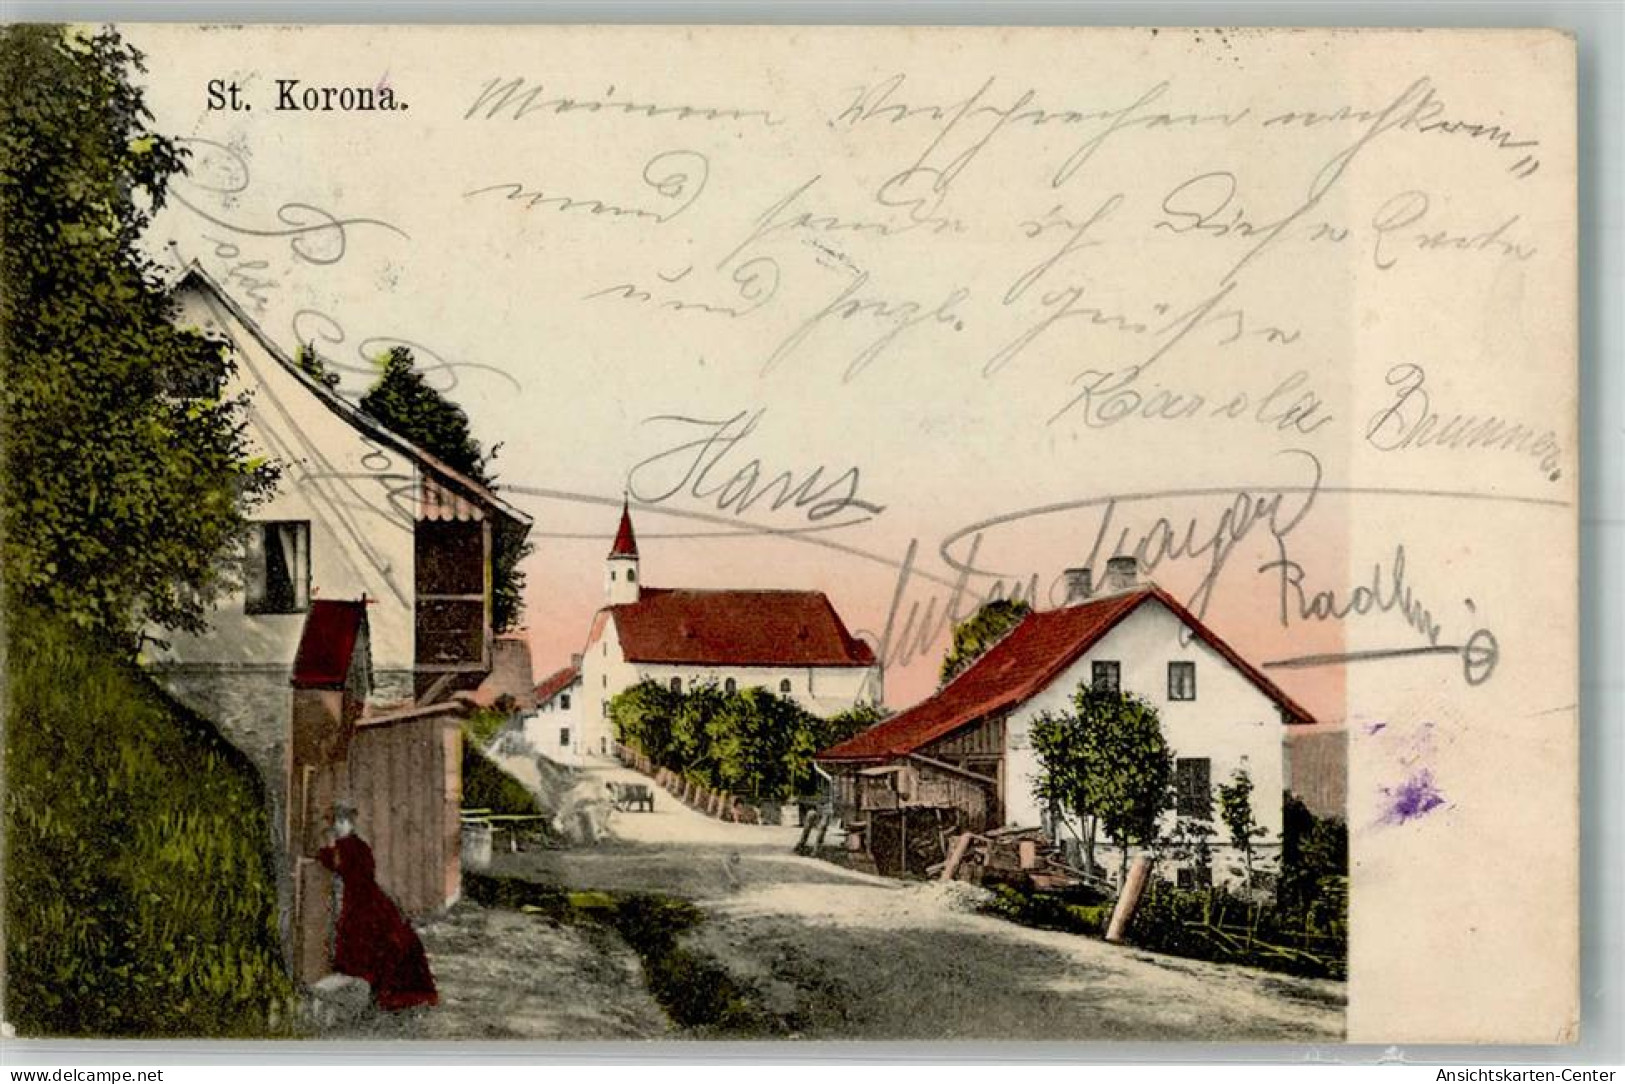 St. Korona.
Meinem Versprechen nachkom„
mend sende ich Diese Carte
und herzl. Grüße
Karola Brunner.
Hans
Anton
delcampe.net
Ansichtskarten-Center